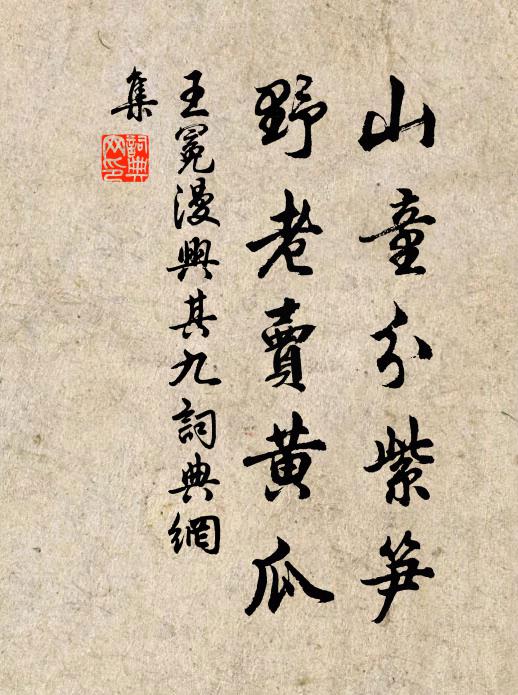 山童分紫笋
野老賣黄瓜
王冕漫興其九詞典網
集
詞典
网印